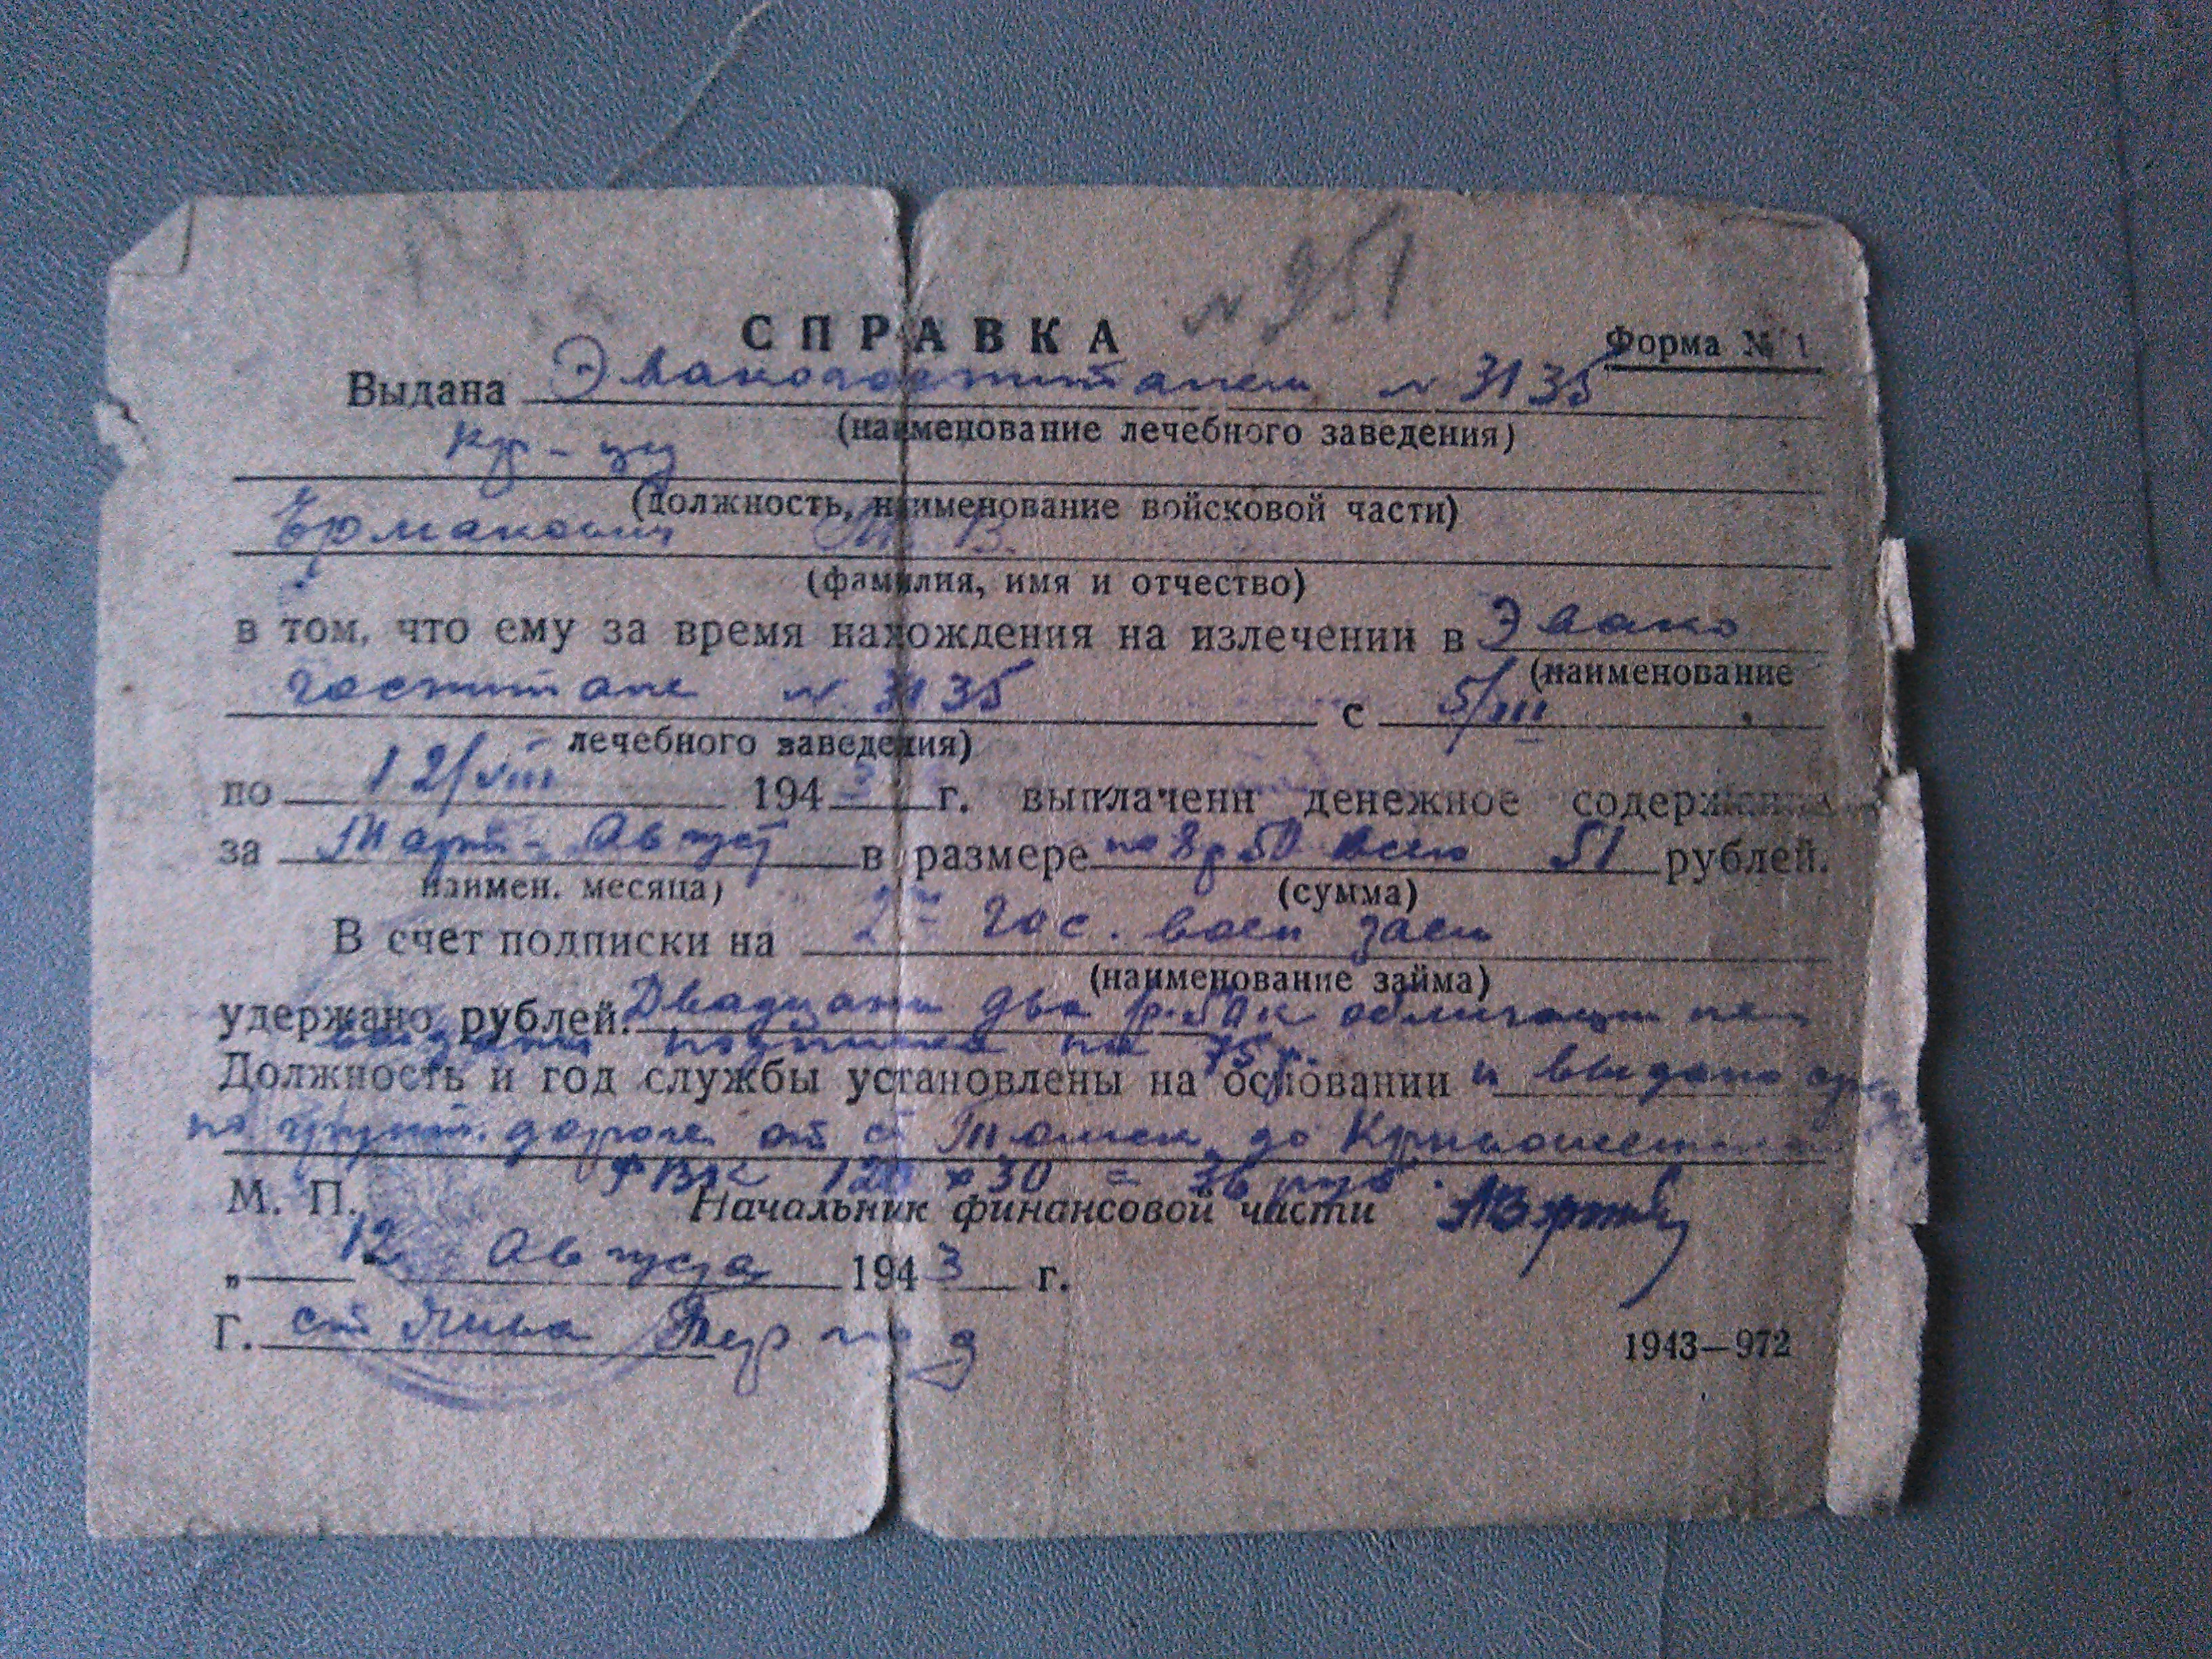 № 951
СПРАВКА
Форма № 1
Выдана Эвакогоспиталем № 3135
(наименование лечебного заведения)
кр-цу
(должность, наименование войсковой части)
Ермакович В.
(фамилия, имя и отчество)
в том, что ему за время нахождения на излечении в Эвако
(наименование
госпитале № 3135 с 5/III
лечебного заведения)
по 12/VIII 1943 г. выплаченн денежное содержание
за Март-Август в размере по 8р50 всего 51 рублей.
наимен. месяца) (сумма)
В счет подписки на 2й гос. воен заем
(наименование займа)
удержано рублей. Двадцать два р. 50 к облигации не
выданы подписка на 75 р.
Должность и год службы установлены на основании и выдано
по грунт. дороге от ст Томск до
120 х 30 = 36 руб.
М. П. Начальник финансовой части
„ 12 Августа 1943 г.
Г. ст
1943—972